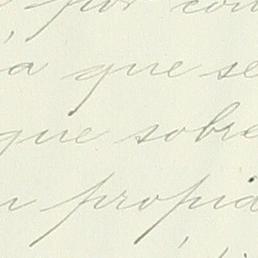 por con
a que se
que sobre
n propia